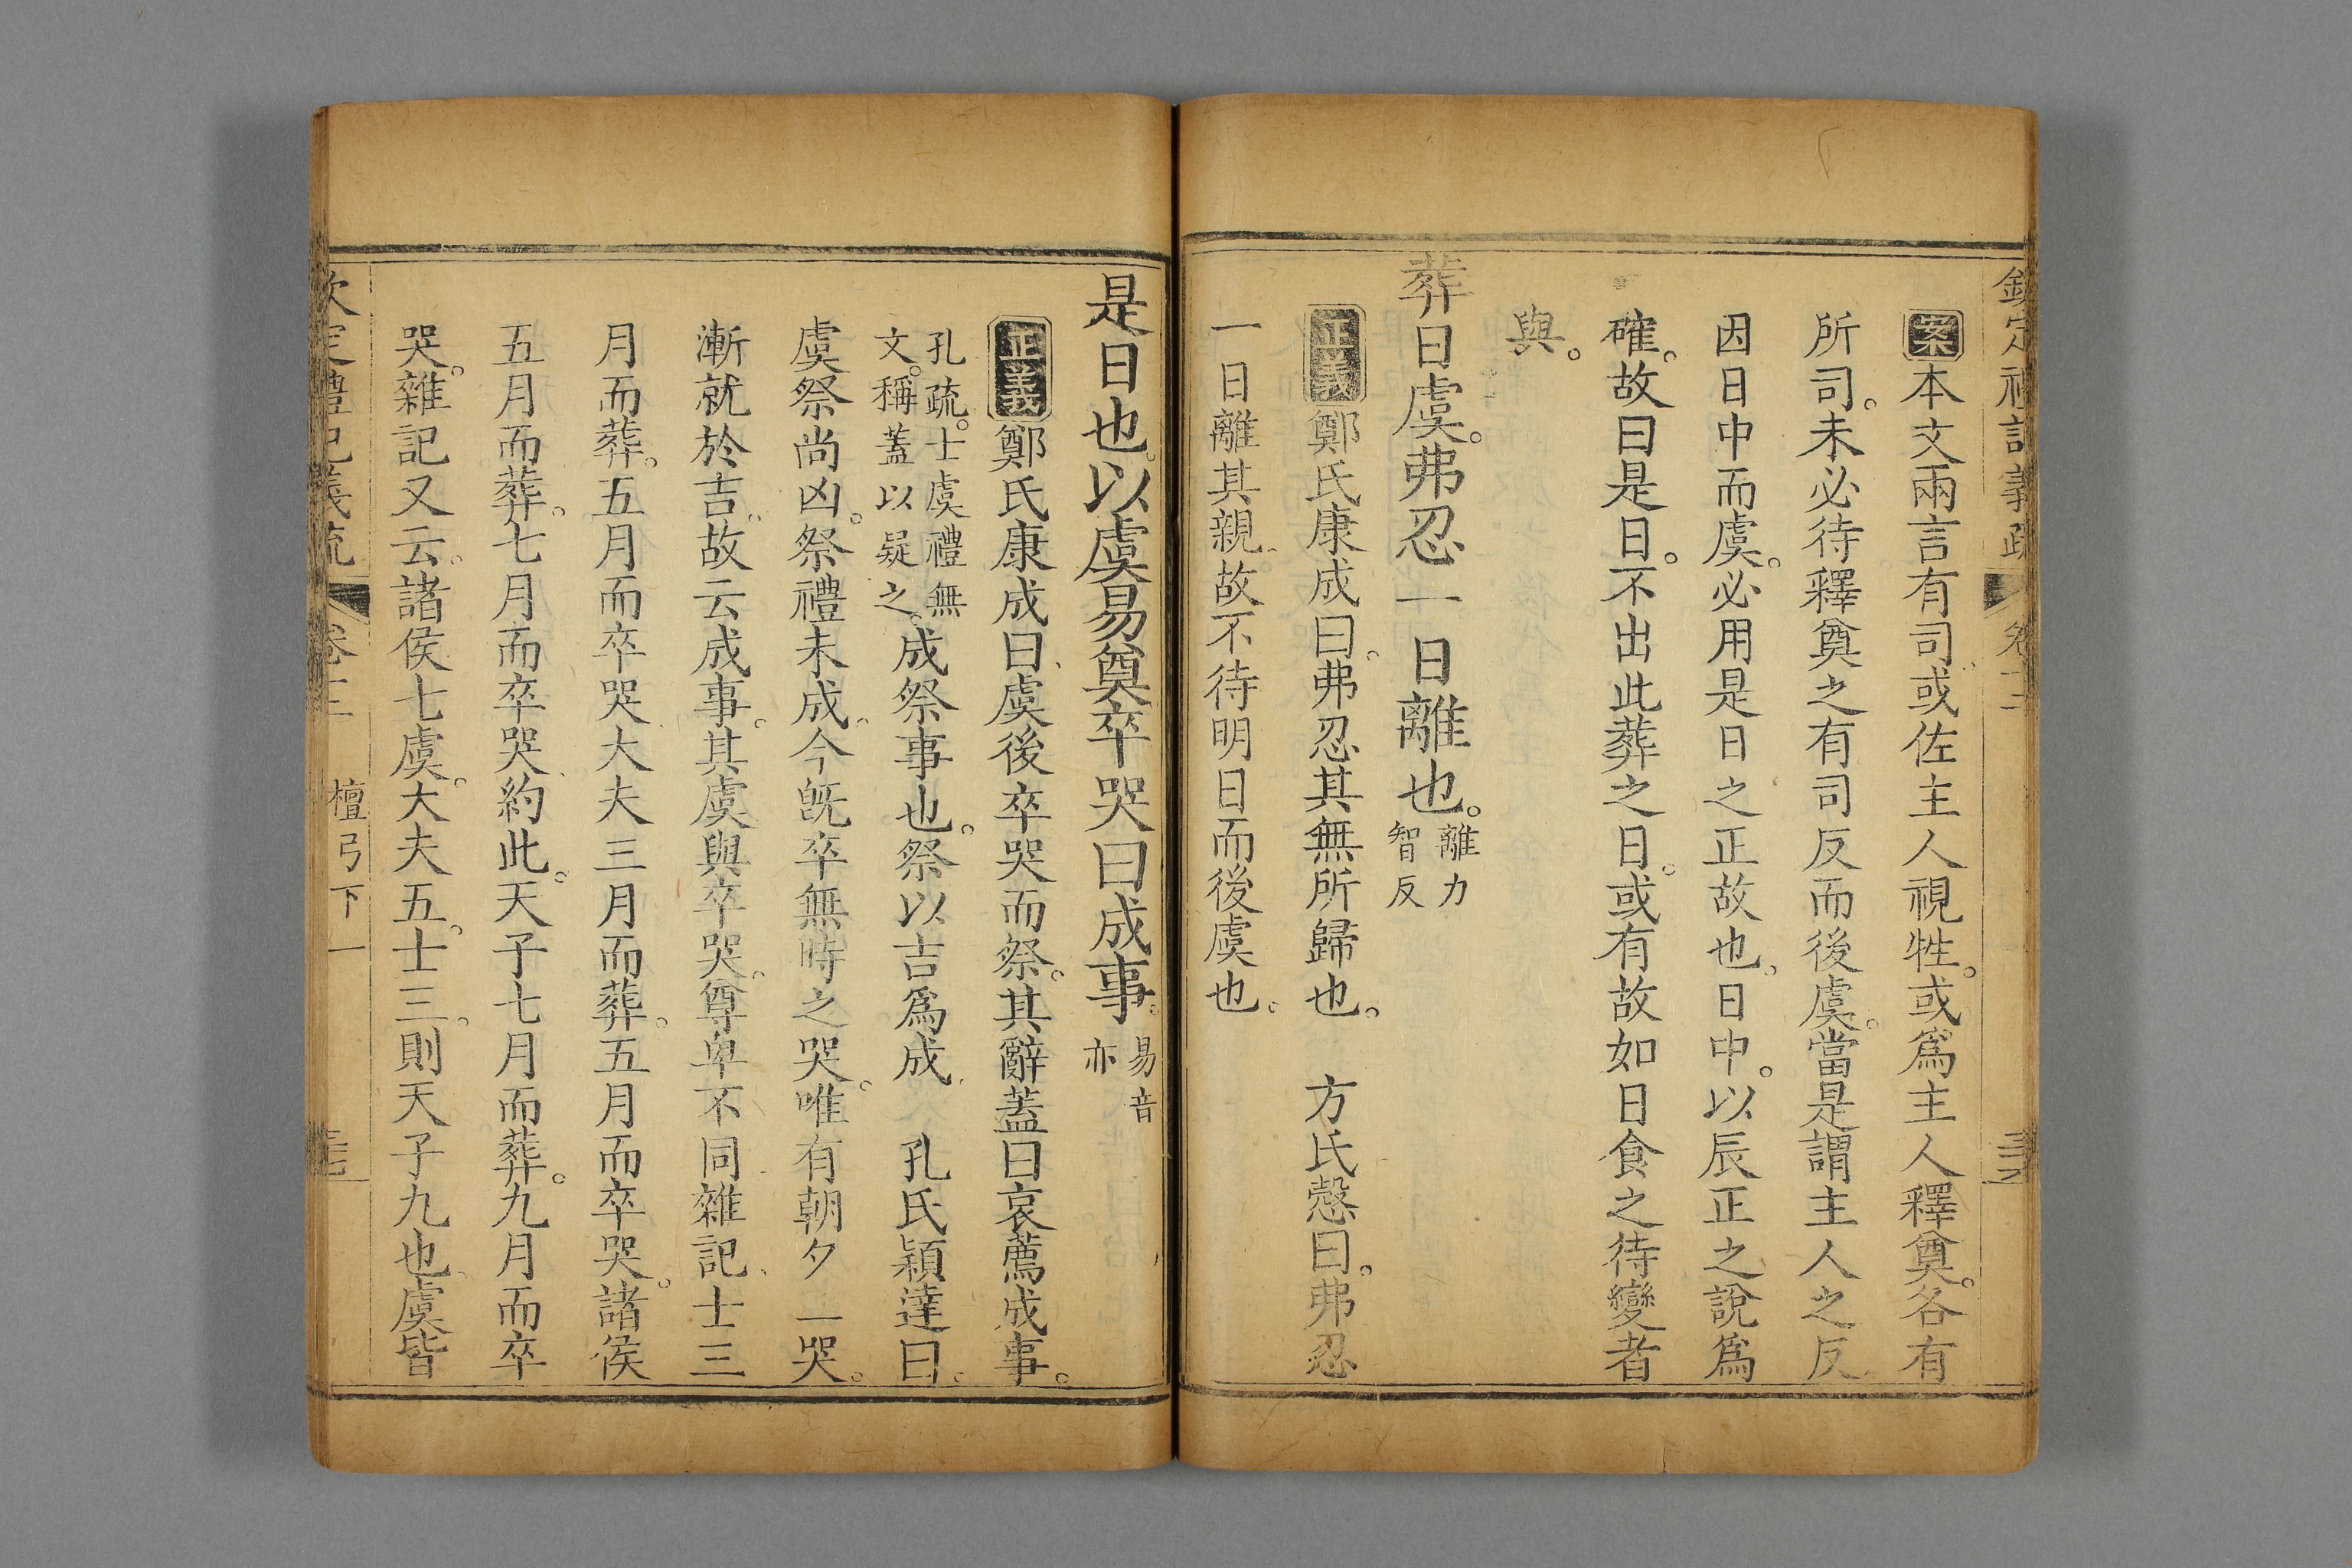 欽定禮記義疏 卷十三
案本文兩言有司或佐主人視牲。或爲主人釋奠。各有
所司。未必待釋奠之有司反而後虞。當是謂主人之反
因日中而虞。必用是日之正故也。日中。以辰正之說爲
確。故曰是日。不出此葬之日。或有故如日食之待變者
與。
葬日虞。弗忍一日離也。離力智反
正義鄭氏康成曰。弗忍其無所歸也。 方氏慤曰。弗忍
一日離其親。故不待明日而後虞也。
是日也。以虞易奠卒哭曰成事。易音亦
正義鄭氏康成曰、虞後卒哭而祭。其辭蓋曰哀薦成事。
孔疏。士虞禮無文。稱蓋以疑之。成祭事也。祭以吉爲成、 孔氏穎達曰。
虞祭尚凶。祭禮未成。今旣卒無時之哭。唯有朝夕一哭。
漸就於吉。故云成事。其虞與卒哭。尊卑不同雜記、士三
月而葬。五月而卒哭、大夫三月而葬。五月而卒哭。諸侯
五月而葬。七月而卒哭、約此。天子七月而葬。九月而卒
哭。雜記又云。諸侯七虞。大夫五。士三。則天子九也、虞皆
欽定禮記義疏 卷十三 檀弓下一